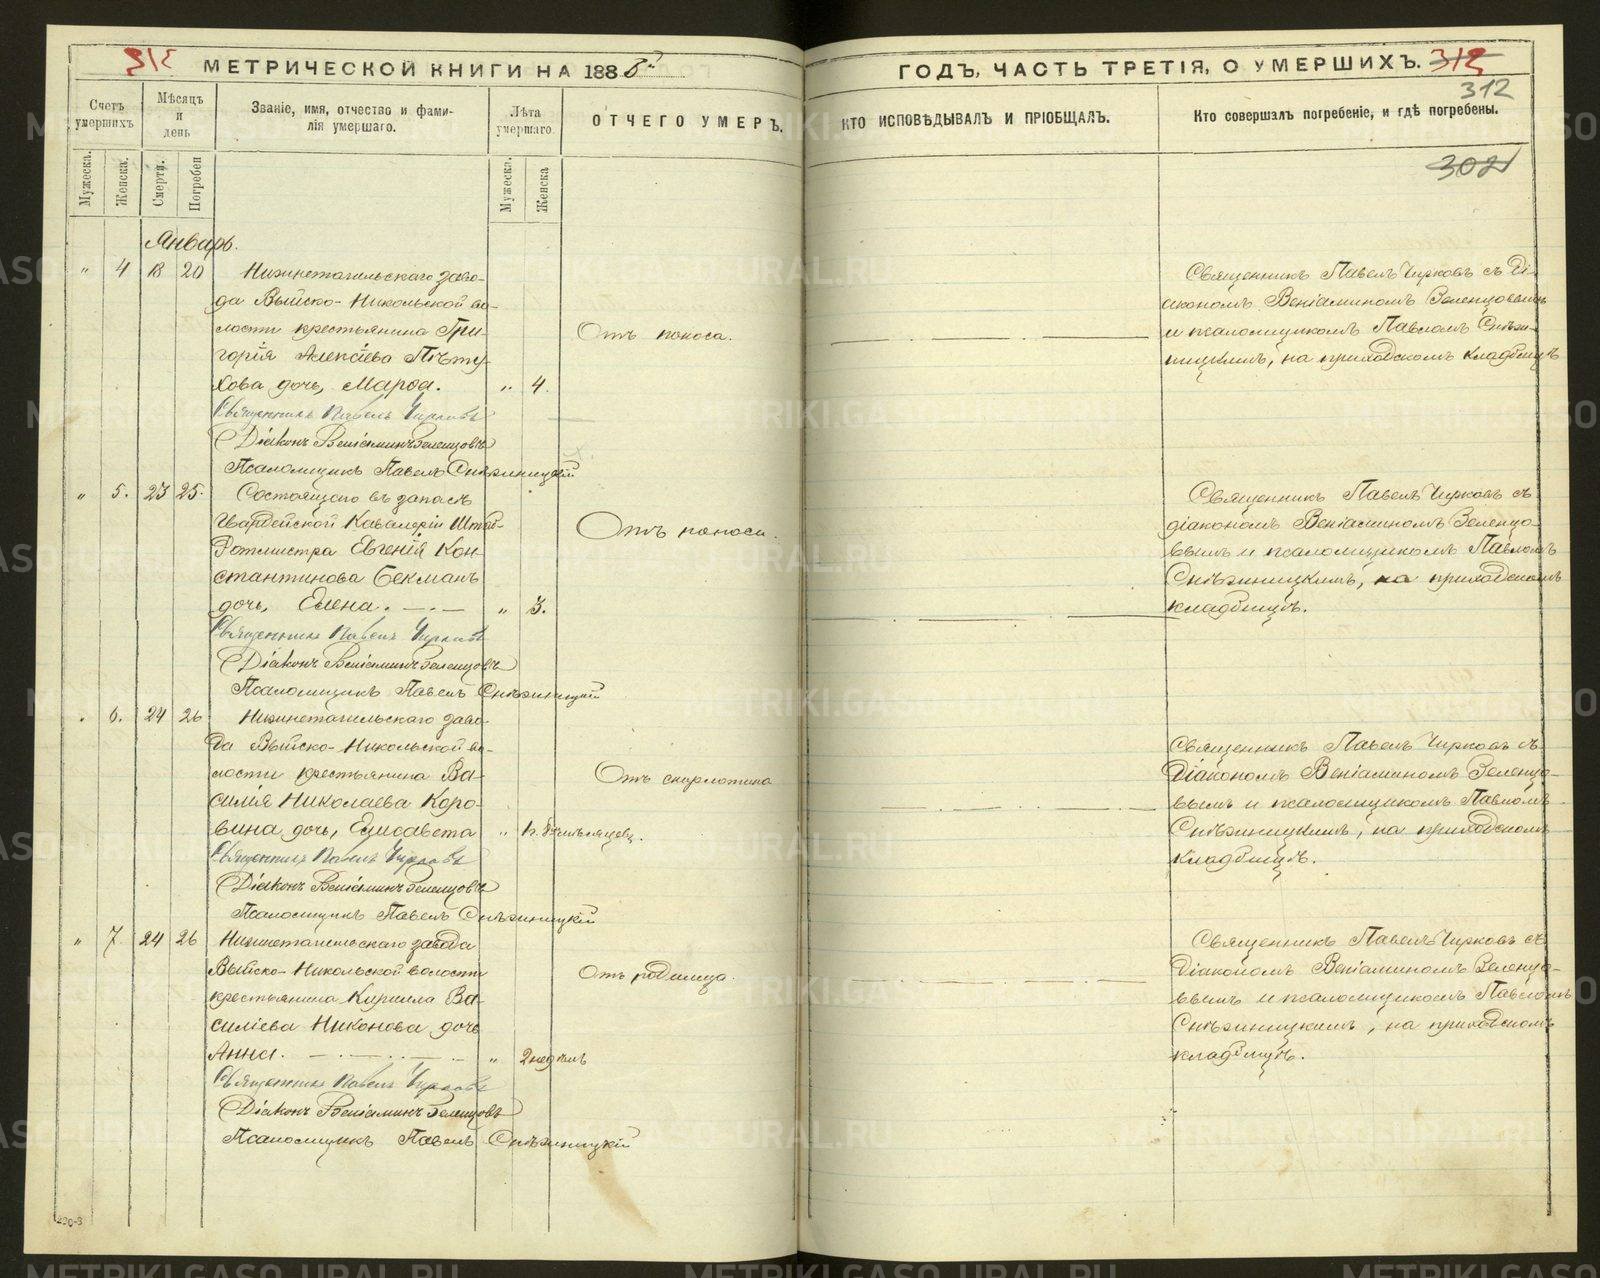 312
МЕТРИЧЕСКОЙ КНИГИ НА 1888й
ГОДЪ, ЧАСТЬ ТРЕТІЯ, О УМЕРШИХЪ.
312
312
302
Счетъ умершихъ.
Мѣсяцъ и день
Званіе, имя, отчество и фами-
лія умершаго.
Лѣта умершаго.
ОТЧЕГО УМЕРЪ.
КТО ИСПОВѢДЫВАЛЪ И ПРІОБЩАЛЪ.
Кто совершалъ погребеніе, и гдѣ погребены.
Мужеска.
Женска.
Смерти.
Погребен
Мужеска.
Женска
Январь.
" 4 18 20
Нижнетагильскаго заво-
да Выйско-Никольской во-
лости крестьянина Гри-
горія Алексіева Пѣту-
хова дочь, Марѳа.
" 4.
Отъ поноса.
Священникъ Павелъ Чирковъ съ Ді-
акономъ Веніаминомъ Зеленцовымъ
и псаломщикомъ Павломъ Снѣжи-
ницкимъ, на приходскомъ кладбищѣ
Священникъ Павелъ Чирковъ
Діаконъ Веніаминъ Зеленцовъ
Псаломщикъ Павелъ Снѣжницкій
" 5. 23 25.
Состоящаго въ запасѣ
Гвардейской Кавалеріи Штаб-
Ротмистра Евгенія Кон-
стантинова Бекманъ
дочь, Елена.
" 3.
Отъ поноса.
Священникъ Павелъ Чирковъ съ
діакономъ Веніаминомъ Зеленцо-
вымъ и псаломщикомъ Павломъ
Снѣжницкимъ, на приходскомъ
кладбищѣ.
Священникъ Павелъ Чирковъ
Діаконъ Веніаминъ Зеленцовъ
Псаломщикъ Павелъ Снѣжницкій
" 6. 24 26
Нижнетагильскаго заво-
да Выйско-Никольской во-
лости крестьянина Ва-
силія Николаева Коро-
вина дочь, Елисавета
Отъ скарлотина
Священникъ Павелъ Чирковъ съ
Діакономъ Веніаминомъ Зеленцо-
вымъ и псаломщикомъ Павломъ
Снѣжницкимъ, на приходскомъ
кладбищѣ.
Священникъ Павелъ Чирковъ
Діаконъ Веніаминъ Зеленцовъ
Псаломщикъ Павелъ Снѣжницкій
" 7. 24 26
Нижнетагильскаго завода
Выйско-Никольской волости
крестьянина Кирилла Ва-
силіева Никонова дочь
Анна.
" 2 недѣль
Отъ родимца.
Священникъ Павелъ Чирковъ съ
Діакономъ Веніаминомъ Зеленцо-
вымъ и псаломщикомъ Павломъ
Снѣжницкимъ, на приходскомъ
кладбищѣ.
Священникъ Павелъ Чирковъ
Діаконъ Веніаминъ Зеленцовъ
Псаломщикъ Павелъ Снѣжницкій
METRIKI.GASO-URAL.RU